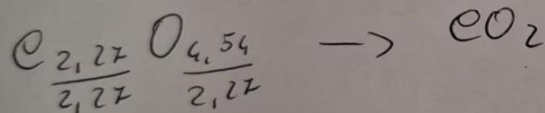 e 2,27/2,27 O 4,54/2,27 → eO2